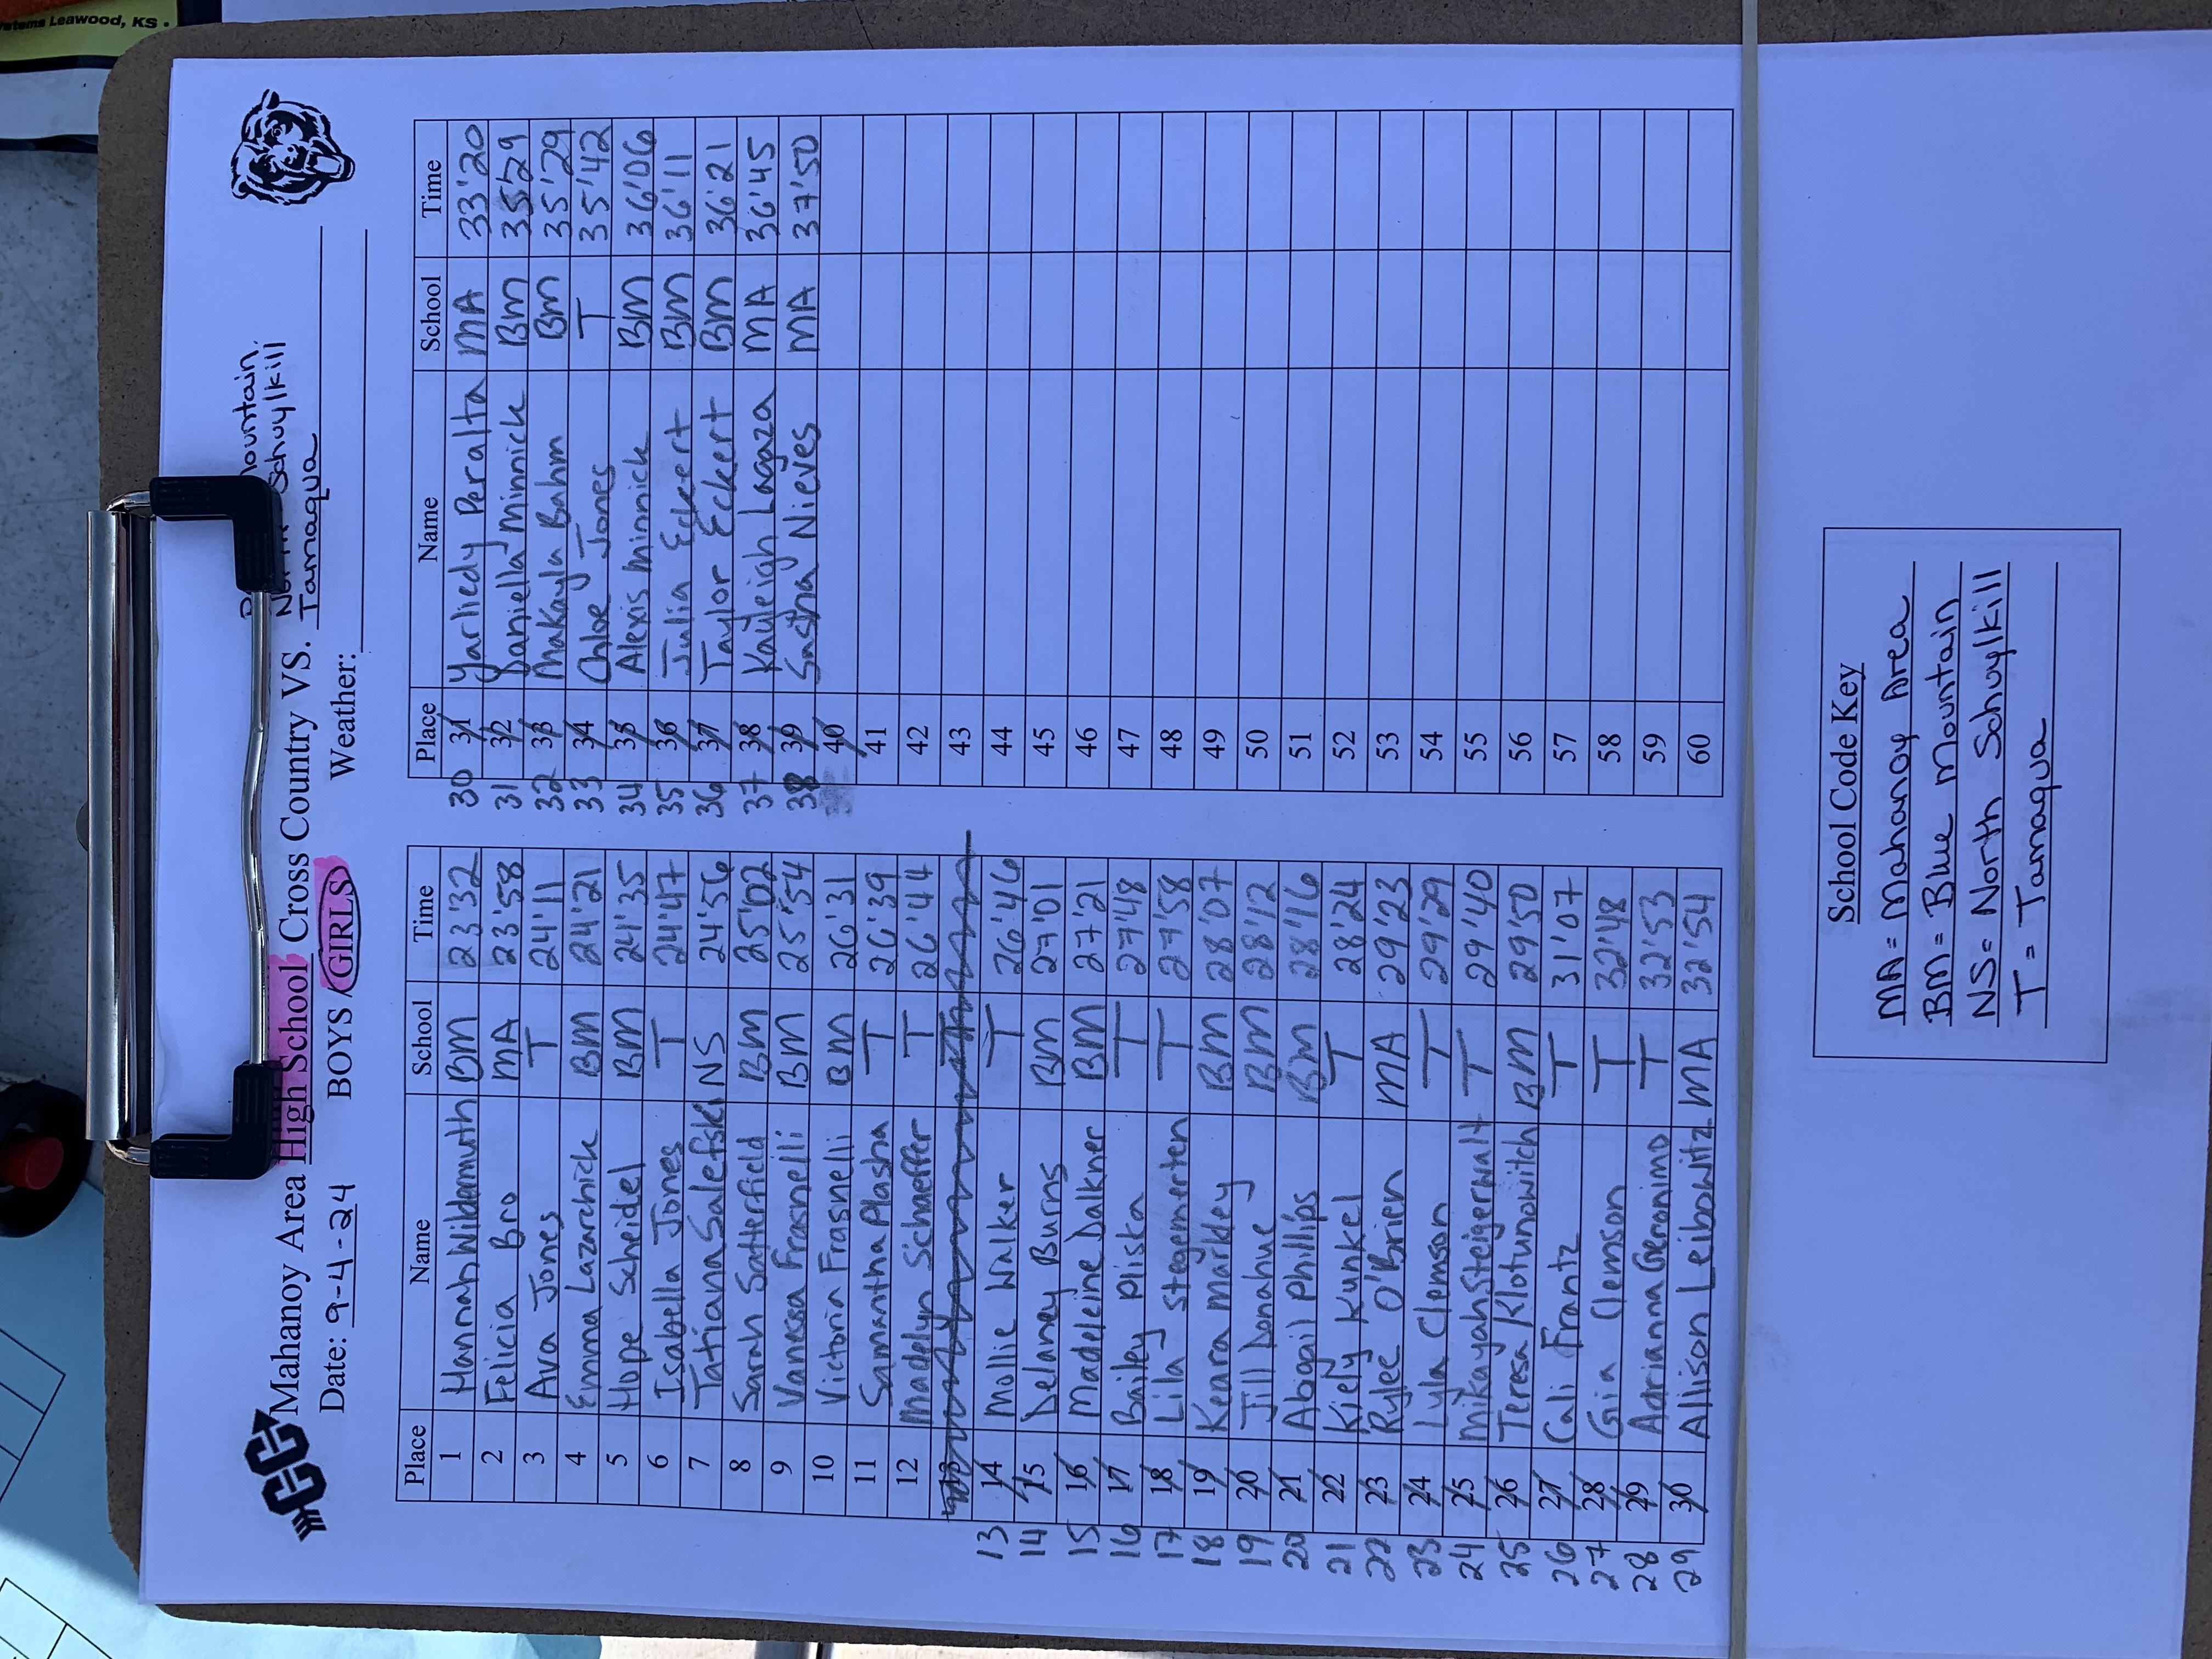 ystems Leawood, KS •
CC Mahanoy Area High School Cross Country VS. Mountain,
Schuylkill
Tamaqua
Date: 9-4-24 BOYS / GIRLS Weather:
Place Name School Time
1 Hannah Wildermuth BM 23'32
2 Felicia Bro MA 23'58
3 Ava Jones T 24'11
4 Emma Lazarchick BM 24'21
5 Hope Scheidel BM 24'35
6 Isabella Jones T 24'47
7 Tatiana Salefski NS 24'56
8 Sarah Satterfield BM 25'02
9 Vanessa Frasnelli BM 25'54
10 Victoria Frasnelli BM 26'31
11 Samantha Plasha T 26'39
12 Madelyn Schaeffer T 26'44
13
13 14 Mollie Walker T 26'46
14 15 Delaney Burns BM 27'01
15 16 Madeleine Dalkner BM 27'21
16 17 Bailey Pliska T 27'48
17 18 Lila Stegemerten T 27'58
18 19 Keara Markley BM 28'07
19 20 Jill Donahue BM 28'12
20 21 Abigail Phillips BM 28'16
21 22 Kiely Kunkel T 28'24
22 23 Rylee O'Brien MA 29'23
23 24 Lyla Clemson T 29'29
24 25 Mikayah Steigerwalt T 29'40
25 26 Teresa Klotunowitch BM 29'50
26 27 Cali Frantz T 31'07
27 28 Gia Clemson T 32'48
28 29 Adrianna Geronimo T 32'53
29 30 Allison Leibowitz MA 32'54
Place Name School Time
30 31 Yarliedy Peralta MA 33'20
31 32 Daniella Minnick BM 35'29
32 33 Makayla Bahm BM 35'29
33 34 Chloe Jones T 35'42
34 35 Alexis Minnick BM 36'06
35 36 Julia Eckert BM 36'11
36 37 Taylor Eckert BM 36'21
37 38 Kayleigh Lagaza MA 36'45
38 39 Sasha Nieves MA 37'50
40
41
42
43
44
45
46
47
48
49
50
51
52
53
54
55
56
57
58
59
60
School Code Key
MA = Mahanoy Area
BM = Blue Mountain
NS = North Schuylkill
T = Tamaqua